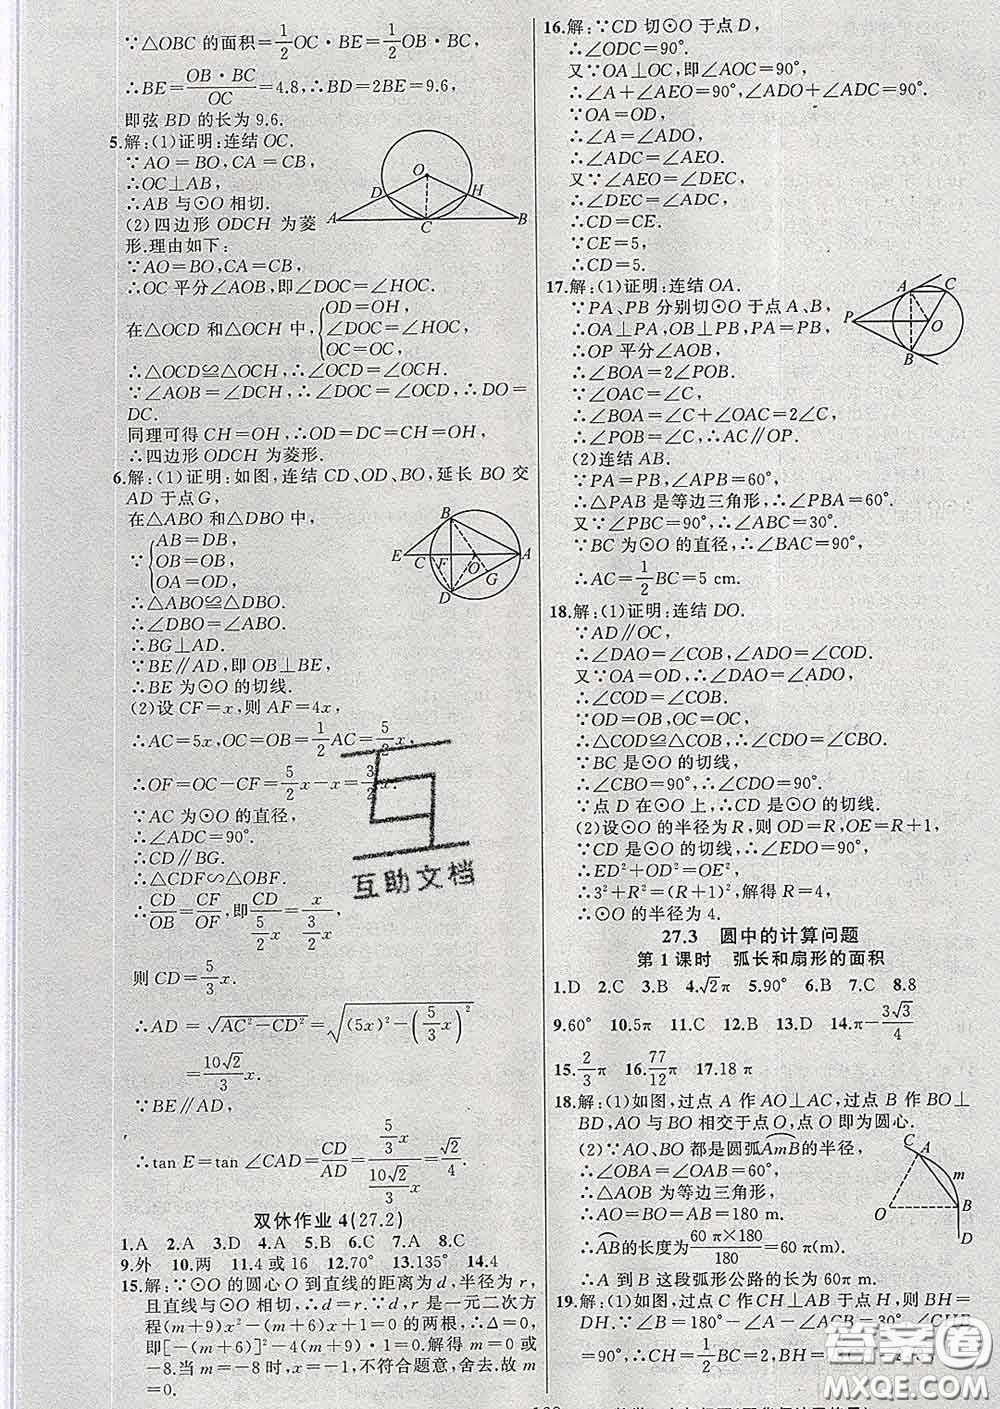 ∵△OBC 的面积=1/2 OC·BE=1/2 OB·BC,
∴BE=OB·BC/OC=4.8,∴BD=2BE=9.6,
即弦 BD 的长为 9.6.
5.解:(1)证明:连结 OC.
∵AO=BO,CA=CB,
∴OC⊥AB,
∴AB 与⊙O 相切.
(2)四边形 ODCH 为菱
形.理由如下:
∵AO=BO,CA=CB,
∴OC 平分∠AOB,即∠DOC=∠HOC.
在△OCD 和△OCH 中,{OD=OH, ∠DOC=∠HOC, OC=OC,
∴△OCD≌△OCH,∴∠OCD=∠OCH.
∵∠AOB=∠DCH,∴∠DOC=∠OCD,∴DO=
DC.
同理可得 CH=OH,∴OD=DC=CH=OH,
∴四边形 ODCH 为菱形.
O D H A C B
6.解:(1)证明:如图,连结 CD、OD、BO,延长 BO 交
AD 于点 G,
在△ABO 和△DBO 中,
∵{AB=DB, OB=OB, OA=OD,
∴△ABO≌△DBO.
∴∠DBO=∠ABO.
∴BG⊥AD.
∵BE∥AD,即 OB⊥BE,
∴BE 为⊙O 的切线.
B E C F O A G D
(2)设 CF=x,则 AF=4x,
∴AC=5x,OC=OB=1/2 AC=5/2 x,
∴OF=OC-CF=5/2 x-x=3/2 x.
∵AC 为⊙O 的直径,
∴∠ADC=90°.
∴CD∥BG.
∴△CDF∽△OBF.
∴CD/OB=CF/OF,即 CD/(5/2 x)=x/(3/2 x),
则 CD=5/3 x.
∴AD=√(AC²-CD²)=√((5x)²-(5/3 x)²)
=10√2/3 x.
∵BE∥AD,
∴tan E=tan ∠CAD=CD/AD=(5/3 x)/(10√2/3 x)=√2/4.
双休作业 4(27.2)
1.A 2.A 3.D 4.A 5.B 6.C 7.A 8.C
9.外 10.两 11.4 或 16 12.70° 13.135° 14.4
15.解:∵⊙O 的圆心 O 到直线的距离为 d,半径为 r,
且直线与⊙O 相切,∴d=r.∵d,r 是一元二次方
程(m+9)x²-(m+6)x+1=0 的两根,∴Δ=0,
即[-(m+6)]²-4(m+9)·1=0.解得 m=0 或
-8.当 m=-8 时,x=-1,不符合题意,舍去.故 m
=0.
16.解:∵CD 切⊙O 于点 D,
∴∠ODC=90°.
又∵OA⊥OC,即∠AOC=90°,
∴∠A+∠AEO=90°,∠ADO+∠ADC=90°.
∵OA=OD,
∴∠A=∠ADO,
∴∠ADC=∠AEO.
又∵∠AEO=∠DEC,
∴∠DEC=∠ADC,
∴CD=CE.
∵CE=5,
∴CD=5.
17.解:(1)证明:连结 OA.
∵PA、PB 分别切⊙O 于点 A、B,
∴OA⊥PA,OB⊥PB,PA=PB,
∴OP 平分∠AOB.
∴∠BOA=2∠POB.
∵∠OAC=∠C,
∴∠BOA=∠C+∠OAC=2∠C.
∴∠POB=∠C,∴AC∥OP.
A C P O B
(2)连结 AB.
∵PA=PB,∠APB=60°,
∴△PAB 是等边三角形,∴∠PBA=60°.
又∵∠PBC=90°,∴∠ABC=30°.
∵BC 为⊙O 的直径,∴∠BAC=90°,
∴AC=1/2 BC=5 cm.
18.解:(1)证明:连结 DO.
∵AD∥OC,
∴∠DAO=∠COB,∠ADO=∠COD.
又∵OA=OD,∴∠DAO=∠ADO,
∴∠COD=∠COB.
∵OD=OB,OC=OC,
∴△COD≌△COB,∴∠CDO=∠CBO.
∵BC 是⊙O 的切线,
∴∠CBO=90°,∴∠CDO=90°.
∵点 D 在⊙O 上,∴CD 是⊙O 的切线.
(2)设⊙O 的半径为 R,则 OD=R,OE=R+1,
∵CD 是⊙O 的切线,∴∠EDO=90°.
∴ED²+OD²=OE²,
∴3²+R²=(R+1)²,解得 R=4,
∴⊙O 的半径为 4.
27.3 圆中的计算问题
第 1 课时 弧长和扇形的面积
1.D 2.C 3.B 4.√2π 5.90° 6.B 7.C 8.8
9.60° 10.5π 11.C 12.B 13.D 14.π-3√3/4
15.2/3 π 16.77/12 π 17.18 π
18.解:(1)如图,过点 A 作 AO⊥AC,过点 B 作 BO⊥
BD,AO 与 BO 相交于点 O,点 O 即为圆心.
(2)∵AO、BO 都是圆弧AmB的半径,
∴∠OBA=∠OAB=60°,
∴△AOB 为等边三角形,
∴AO=BO=AB=180 m.
∴AB的长度为 60 π×180/180=60 π(m).
∴A 到 B 这段弧形公路的长为 60π m.
C A m O B D
19.解:(1)如图,过点 C 作 CH⊥AB 于点 H,则 BH=
DH.∵∠B=180°-∠A-∠ACB=30°,∠CHB
=90°,∴CH=1/2 BC=2,BH=
互助文档
答案圈
MXQE.COM